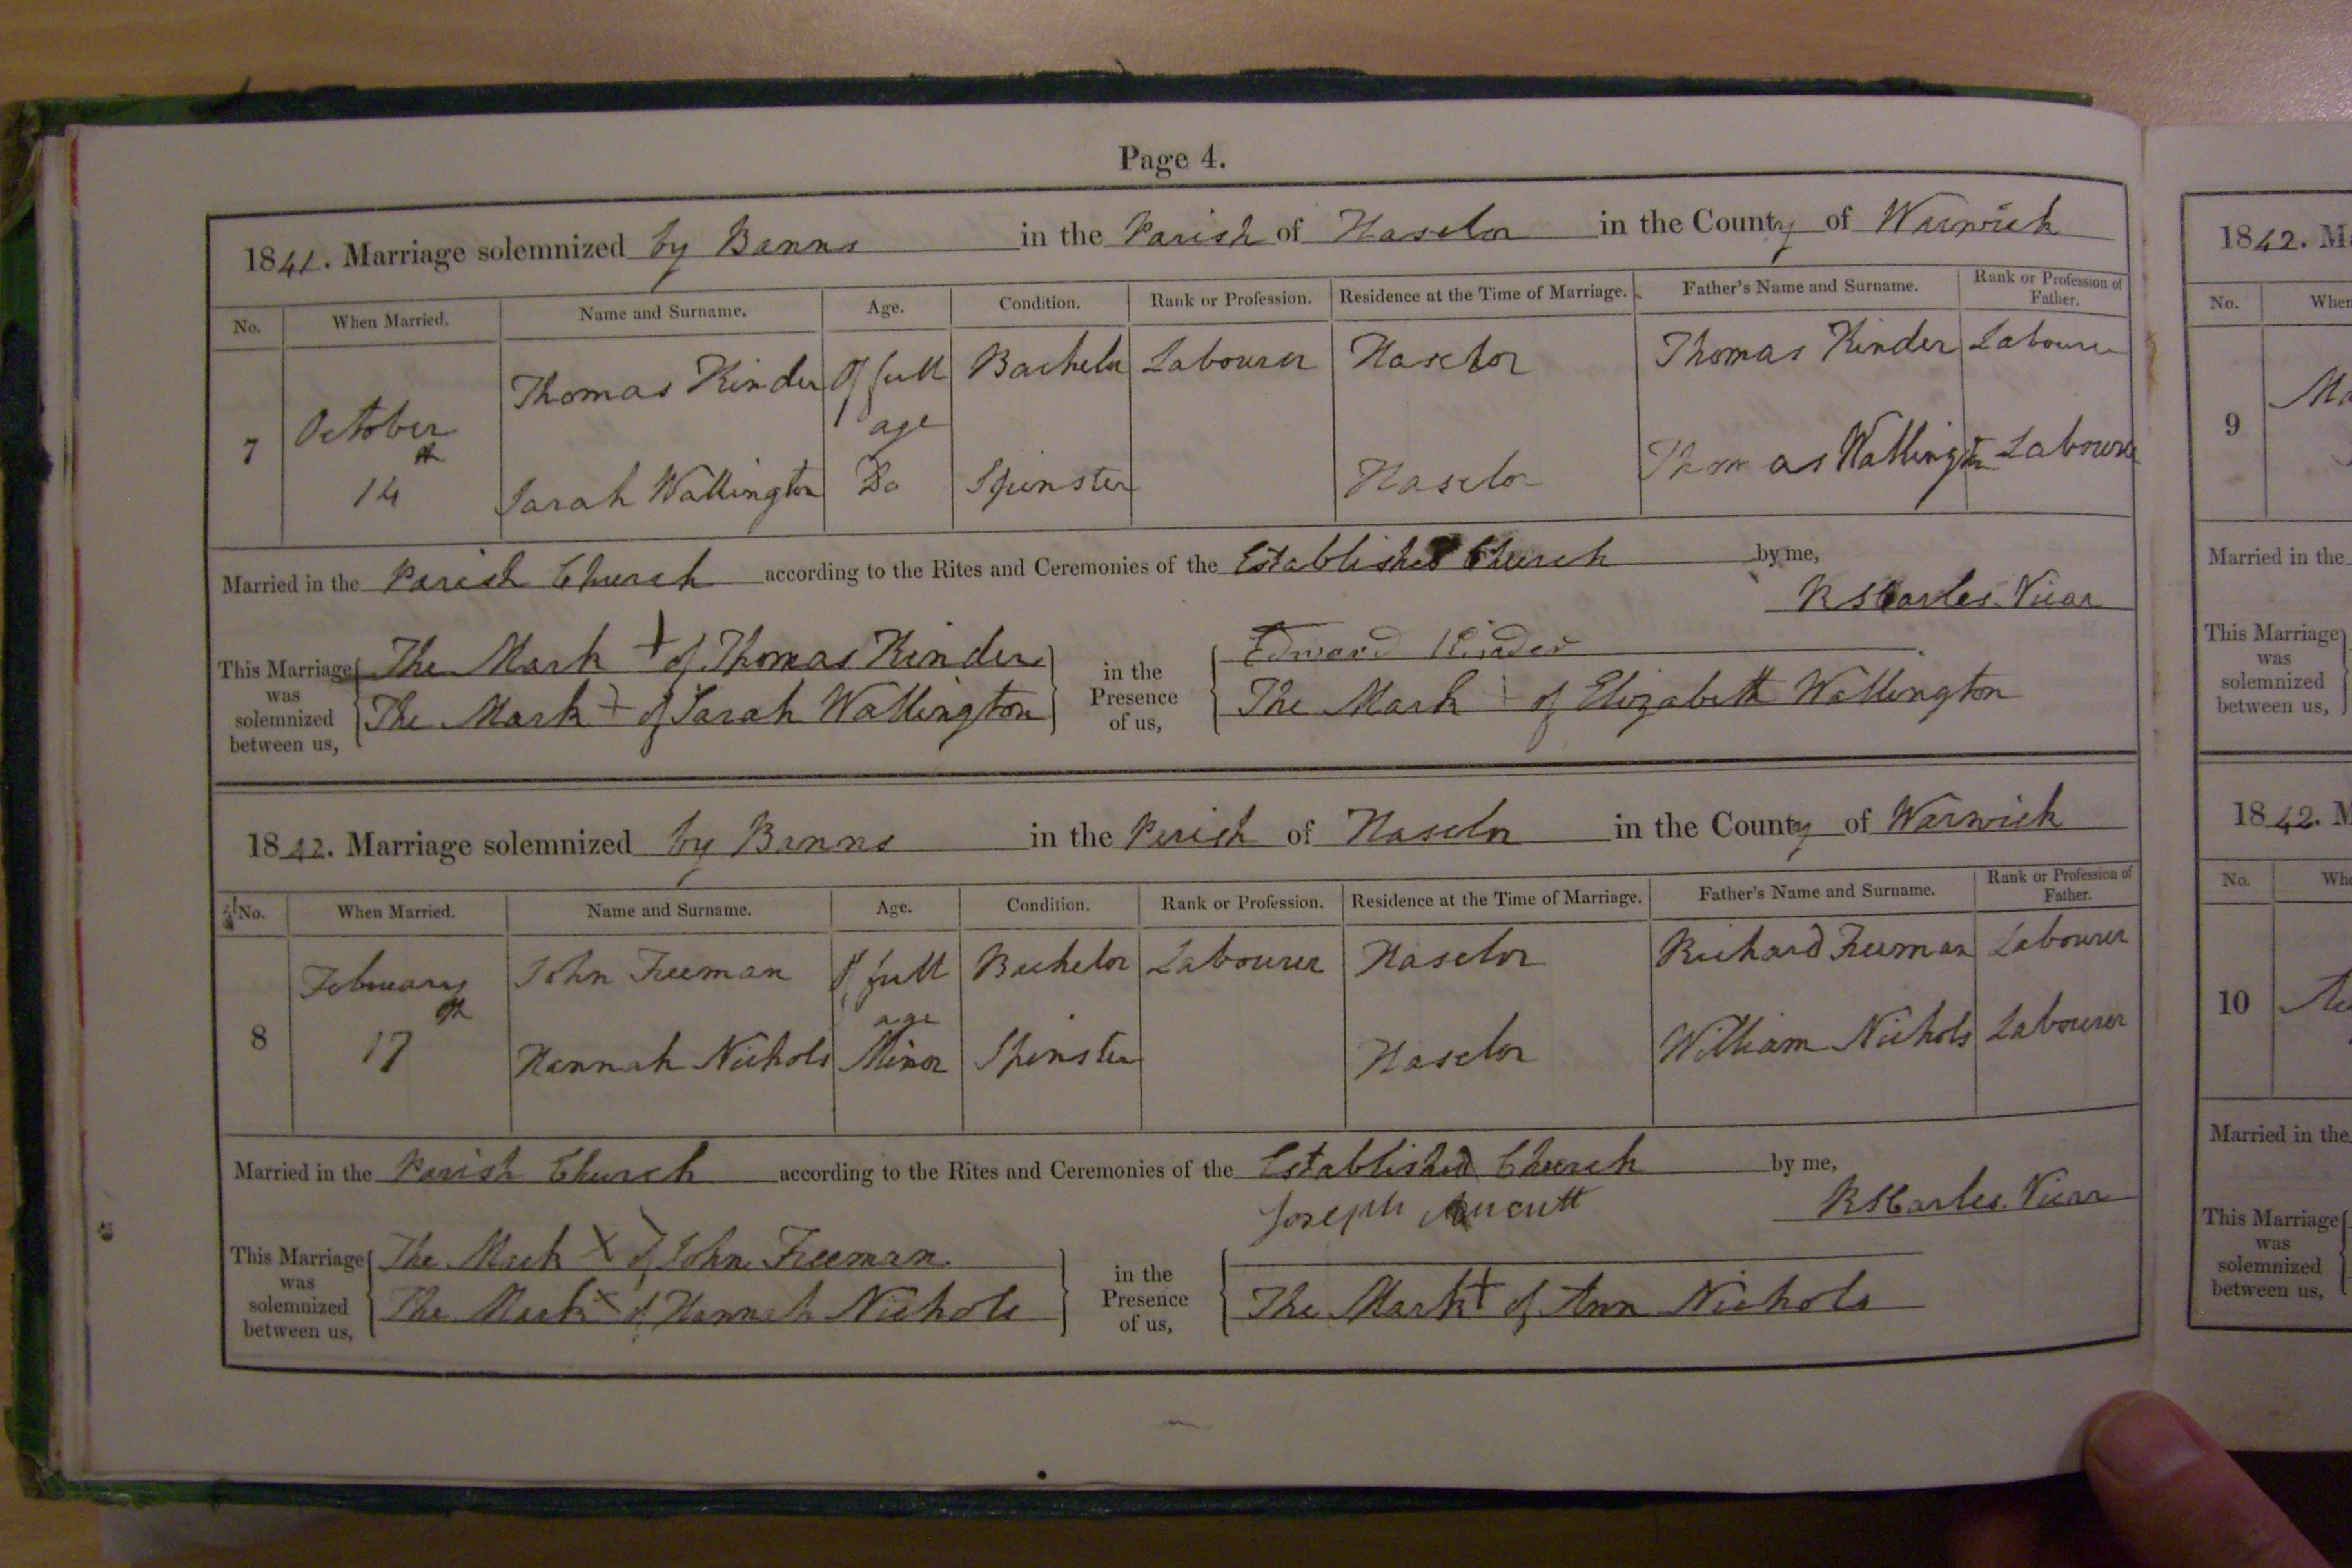 Page 4.
1841. Marriage solemnized by Banns in the Parish of Haselor in the County of Warwick
No. When Married. Name and Surname. Age. Condition. Rank or Profession. Residence at the Time of Marriage. Father's Name and Surname. Rank or Profession of Father.
7 October 14th Thomas Kinder Of full age Bachelor Labourer Haselor Thomas Kinder Labourer
Sarah Wallington Do Spinster Haselor Thomas Wallington Labourer
Married in the Parish Church according to the Rites and Ceremonies of the Established Church by me,
R S Carles. Vicar
This Marriage was solemnized between us,
The Mark + of Thomas Kinder
The Mark + of Sarah Wallington
in the Presence of us,
Edward Kinder
The Mark + of Elizabeth Wallington
1842. Marriage solemnized by Banns in the Parish of Haselor in the County of Warwick
No. When Married. Name and Surname. Age. Condition. Rank or Profession. Residence at the Time of Marriage. Father's Name and Surname. Rank or Profession of Father.
8 February 17th John Freeman Of full age Bachelor Labourer Haselor Richard Freeman Labourer
Hannah Nichols Minor Spinster Haselor William Nichols Labourer
Married in the Parish Church according to the Rites and Ceremonies of the Established Church by me,
R S Carles. Vicar
This Marriage was solemnized between us,
The Mark X of John Freeman.
The Mark X of Hannah Nichols
in the Presence of us,
Joseph
The Mark + of Ann Nichols
1842.
No.
9
Married in the
This Marriage was solemnized between us,
1842.
No.
10
Married in the
This Marriage was solemnized between us,